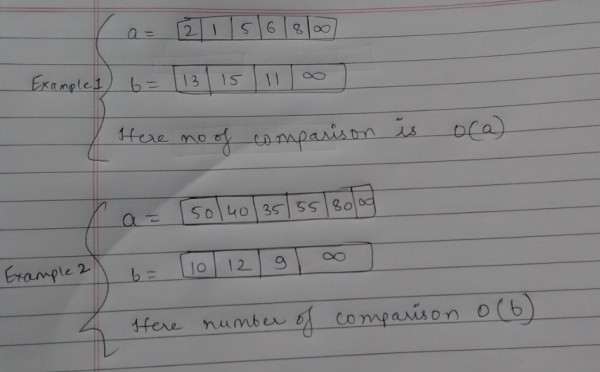 a = 2 1 5 6 8 ∞
Example 1 b = 13 15 11 ∞
Here no of comparison is O(a)
a = 50 40 35 55 80 ∞
Example 2 b = 10 12 9 ∞
Here number of comparison O(b)